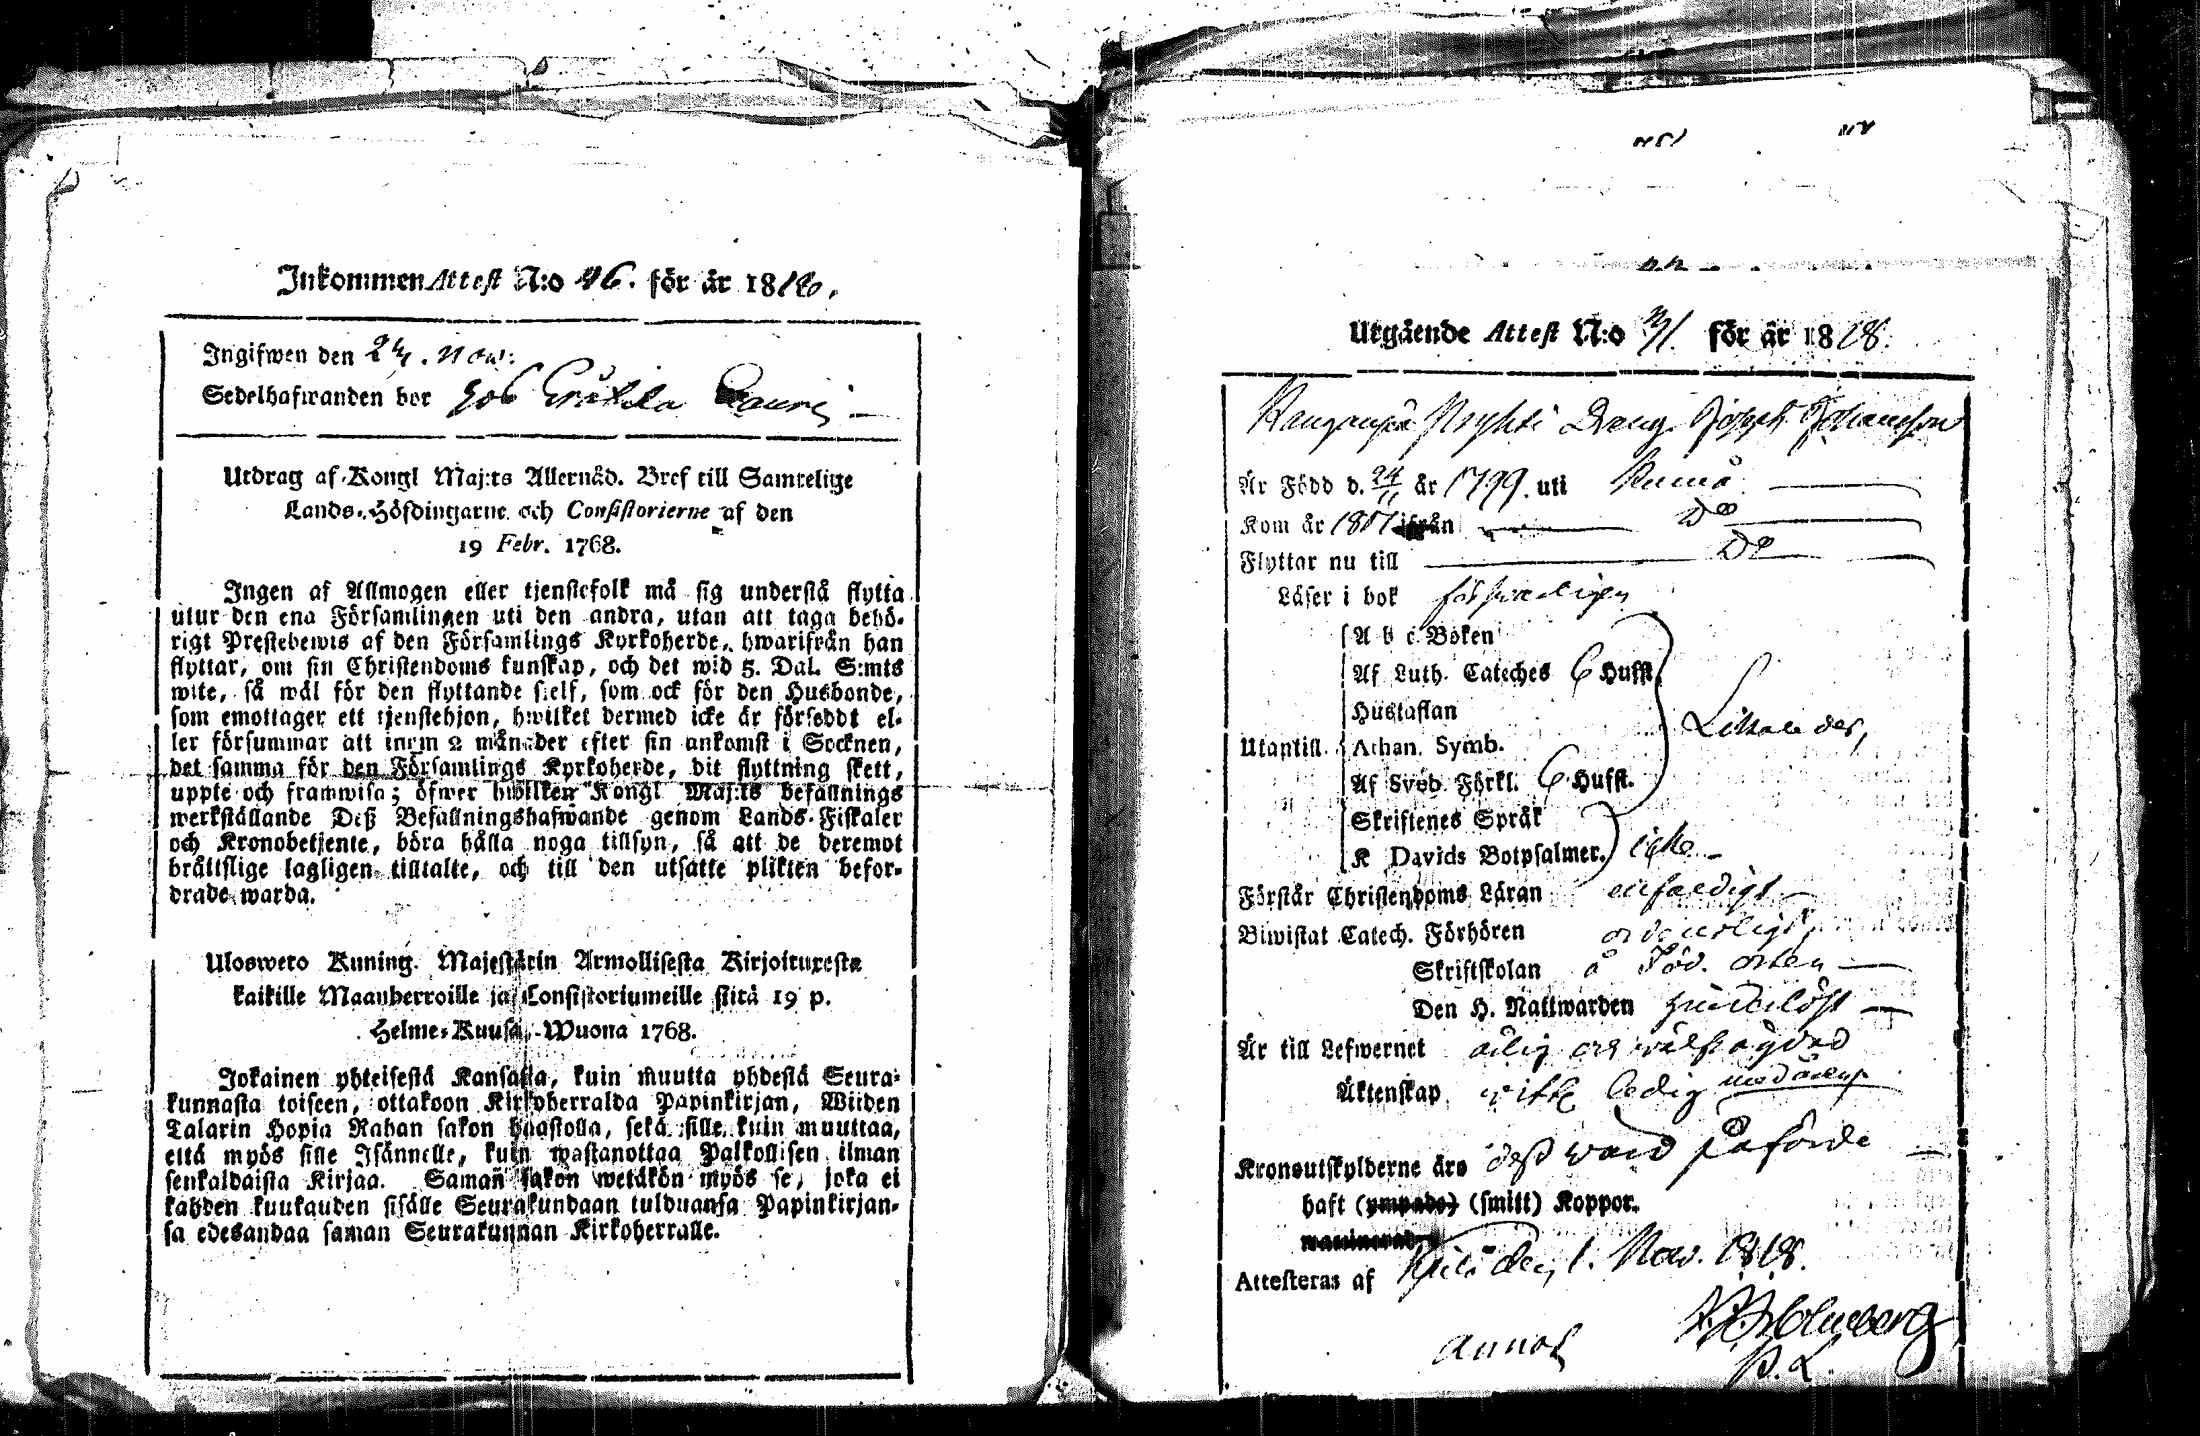 Inkommen Attest N:o 46. för år 1818.
Ingifwen den 24. Nov:
Sedelhafwanden bor hos Lauri
Utdrag af Kongl Maj:ts Allernåd. Bref till Samtelige
Lands-Höfdingarne och Consistorierne af den
19 Febr. 1768.
Ingen af Allmogen eller tjenstefolk må sig understå flytta
utur den ena Församlingen uti den andra, utan att taga behö-
rigt Prestebewis af den Församlings Kyrkoherde, hwarifrån han
flyttar, om sin Christendoms kunskap, och det wid 5. Dal. S:mts
wite, så wäl för den flyttande sielf, som ock för den Husbonde,
som emottager ett tjenstehjon, hwilket dermed icke är försedt el-
ler försummar att inom 2 månader efter sin ankomst i Socknen,
det samma för den Församlings Kyrkoherde, dit flyttning skett,
uppte och framwisa; öfwer hwilken Kongl Maj:ts befallnings
werkställande Deß Befallningshafwande genom Lands-Fiskaler
och Kronobetjente, böra hålla noga tillsyn, så att de deremot
bråttslige lagligen tilltalte, och till den utsatte plikten befor-
drade warda.
Uloswero Kuning. Majestärin Armollisesta Kirjoituxesta
kaikille Maanherroille ja Consistoriumeille siitä 19 p.
Helme-Kuusa, Wuona 1768.
Jokainen yhteisestä Kansasta, kuin muutta yhdestä Seura-
kunnasta toiseen, ottakoon Kirkoherralda Papinkirjan, Wiiden
Talarin Hopia Rahan sakon haastolla, sekä sille kuin muuttaa,
että myös sille Isännelle, kuin wastanottaa Palkollisen ilman
senkaldaista Kirjaa. Saman sakon wetäkön myös se, joka ei
kahden kuukauden sisälle Seurakundaan tulduansa Papinkirjan-
sa edesandaa saman Seurakunnan Kirkoherralle.
Utgående Attest N:o 31. för år 1818.
Dreng Joseph Johansson
Är Född d. 24/11 år 1799. uti Kumå
Kom år 1817 ifrån Do
Flyttar nu till Do
Läser i bok försvarligen
A b c Boken
Af Luth. Cateches 6 Hufst.
Hustaflan
Utantill. Athan. Symb.
Af Sveb. Förkl. 6 Hufst.
Skriftenes Språk
K Davids Botpsalmer. icke
Förstår Christendoms Läran enfaldigt
Biwistat Catech. Förhören ordentligt
Skriftskolan å Föd. orten
Den H. Nattwarden
Är till Lefwernet ärlig och wälfrägdad
Äktenskap ledig
Kronoutskylderne äro påförde
haft (ympade) (smitt) Koppor.
Attesteras af den 1. Nov. 1818.
Holmberg
Annot
P. L.